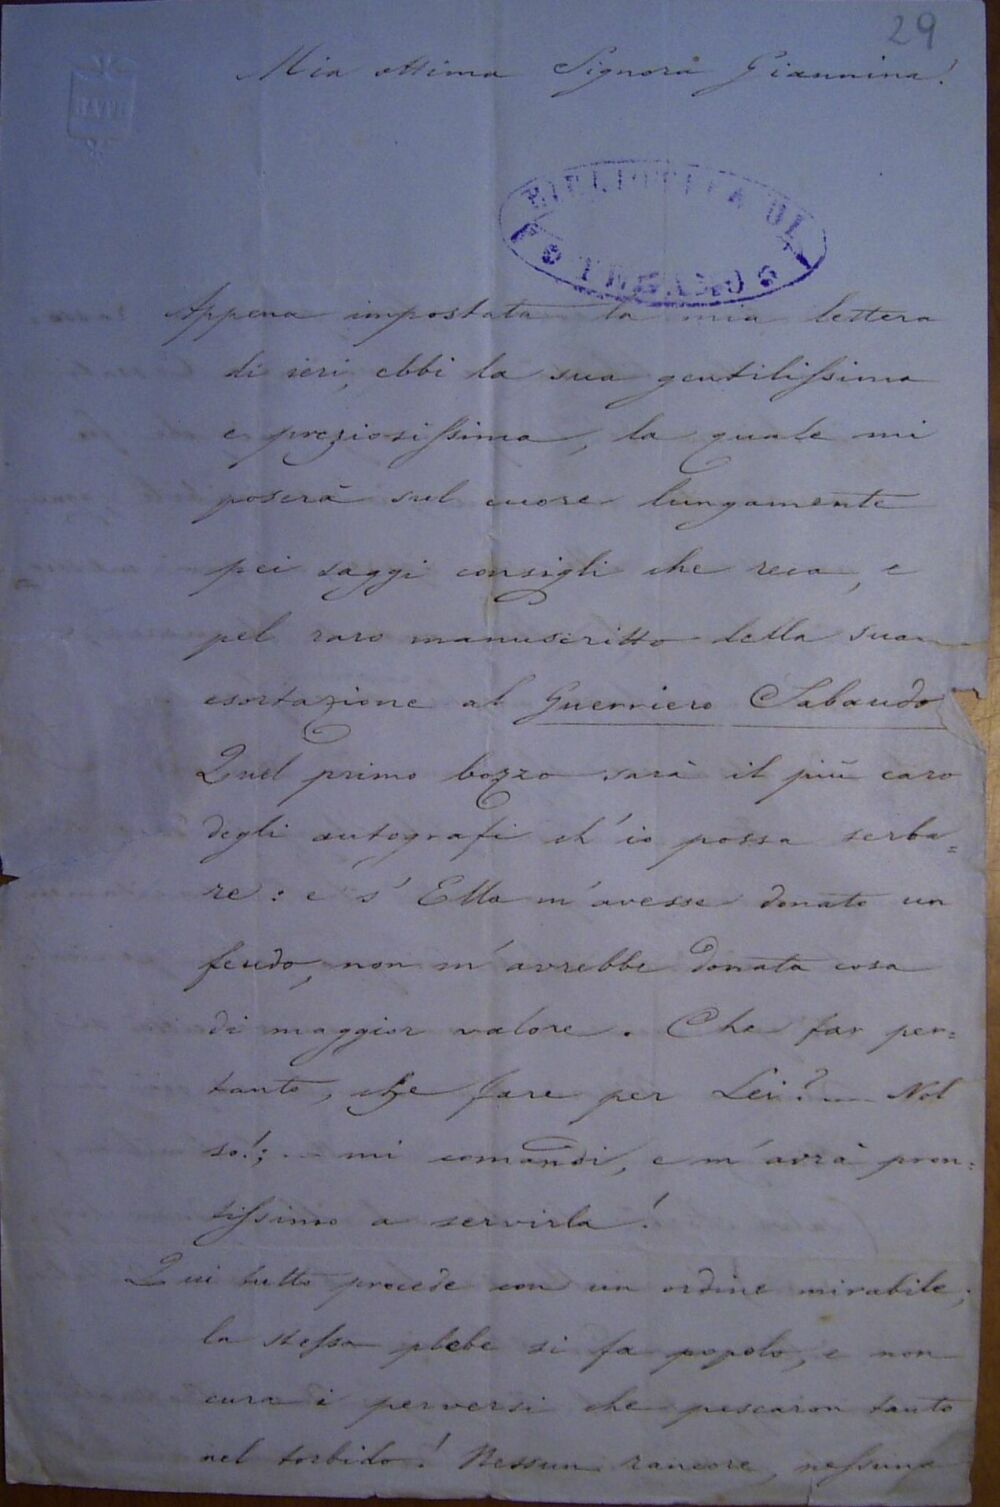 29
Mia ottima Signora Giannina!
BATH
BIBLIOTECA DI
TERAMO
Appena impostata la mia lettera
di ieri, ebbi la sua gentilissima
e preziosissima, la quale mi
poserà sul cuore lungamente
pei saggi consigli che reca, e
pel raro manuscritto della sua
esortazione al Guerriero Sabaudo
Quel primo bozzo sarà il più caro
degli autografi ch'io possa serba=
re: e s'Ella m'avesse donato un
feudo, non m'avrebbe donata cosa
di maggior valore. Che far per=
tanto, che fare per Lei?... Nol
so!;... mi comandi, e m'avrà pron=
tissimo a servirla!
Qui tutto procede con un ordine mirabile;
la stessa plebe si fa popolo, e non
cura i perversi che pescaron tanto
nel torbido! Nessun rancore, nessuna